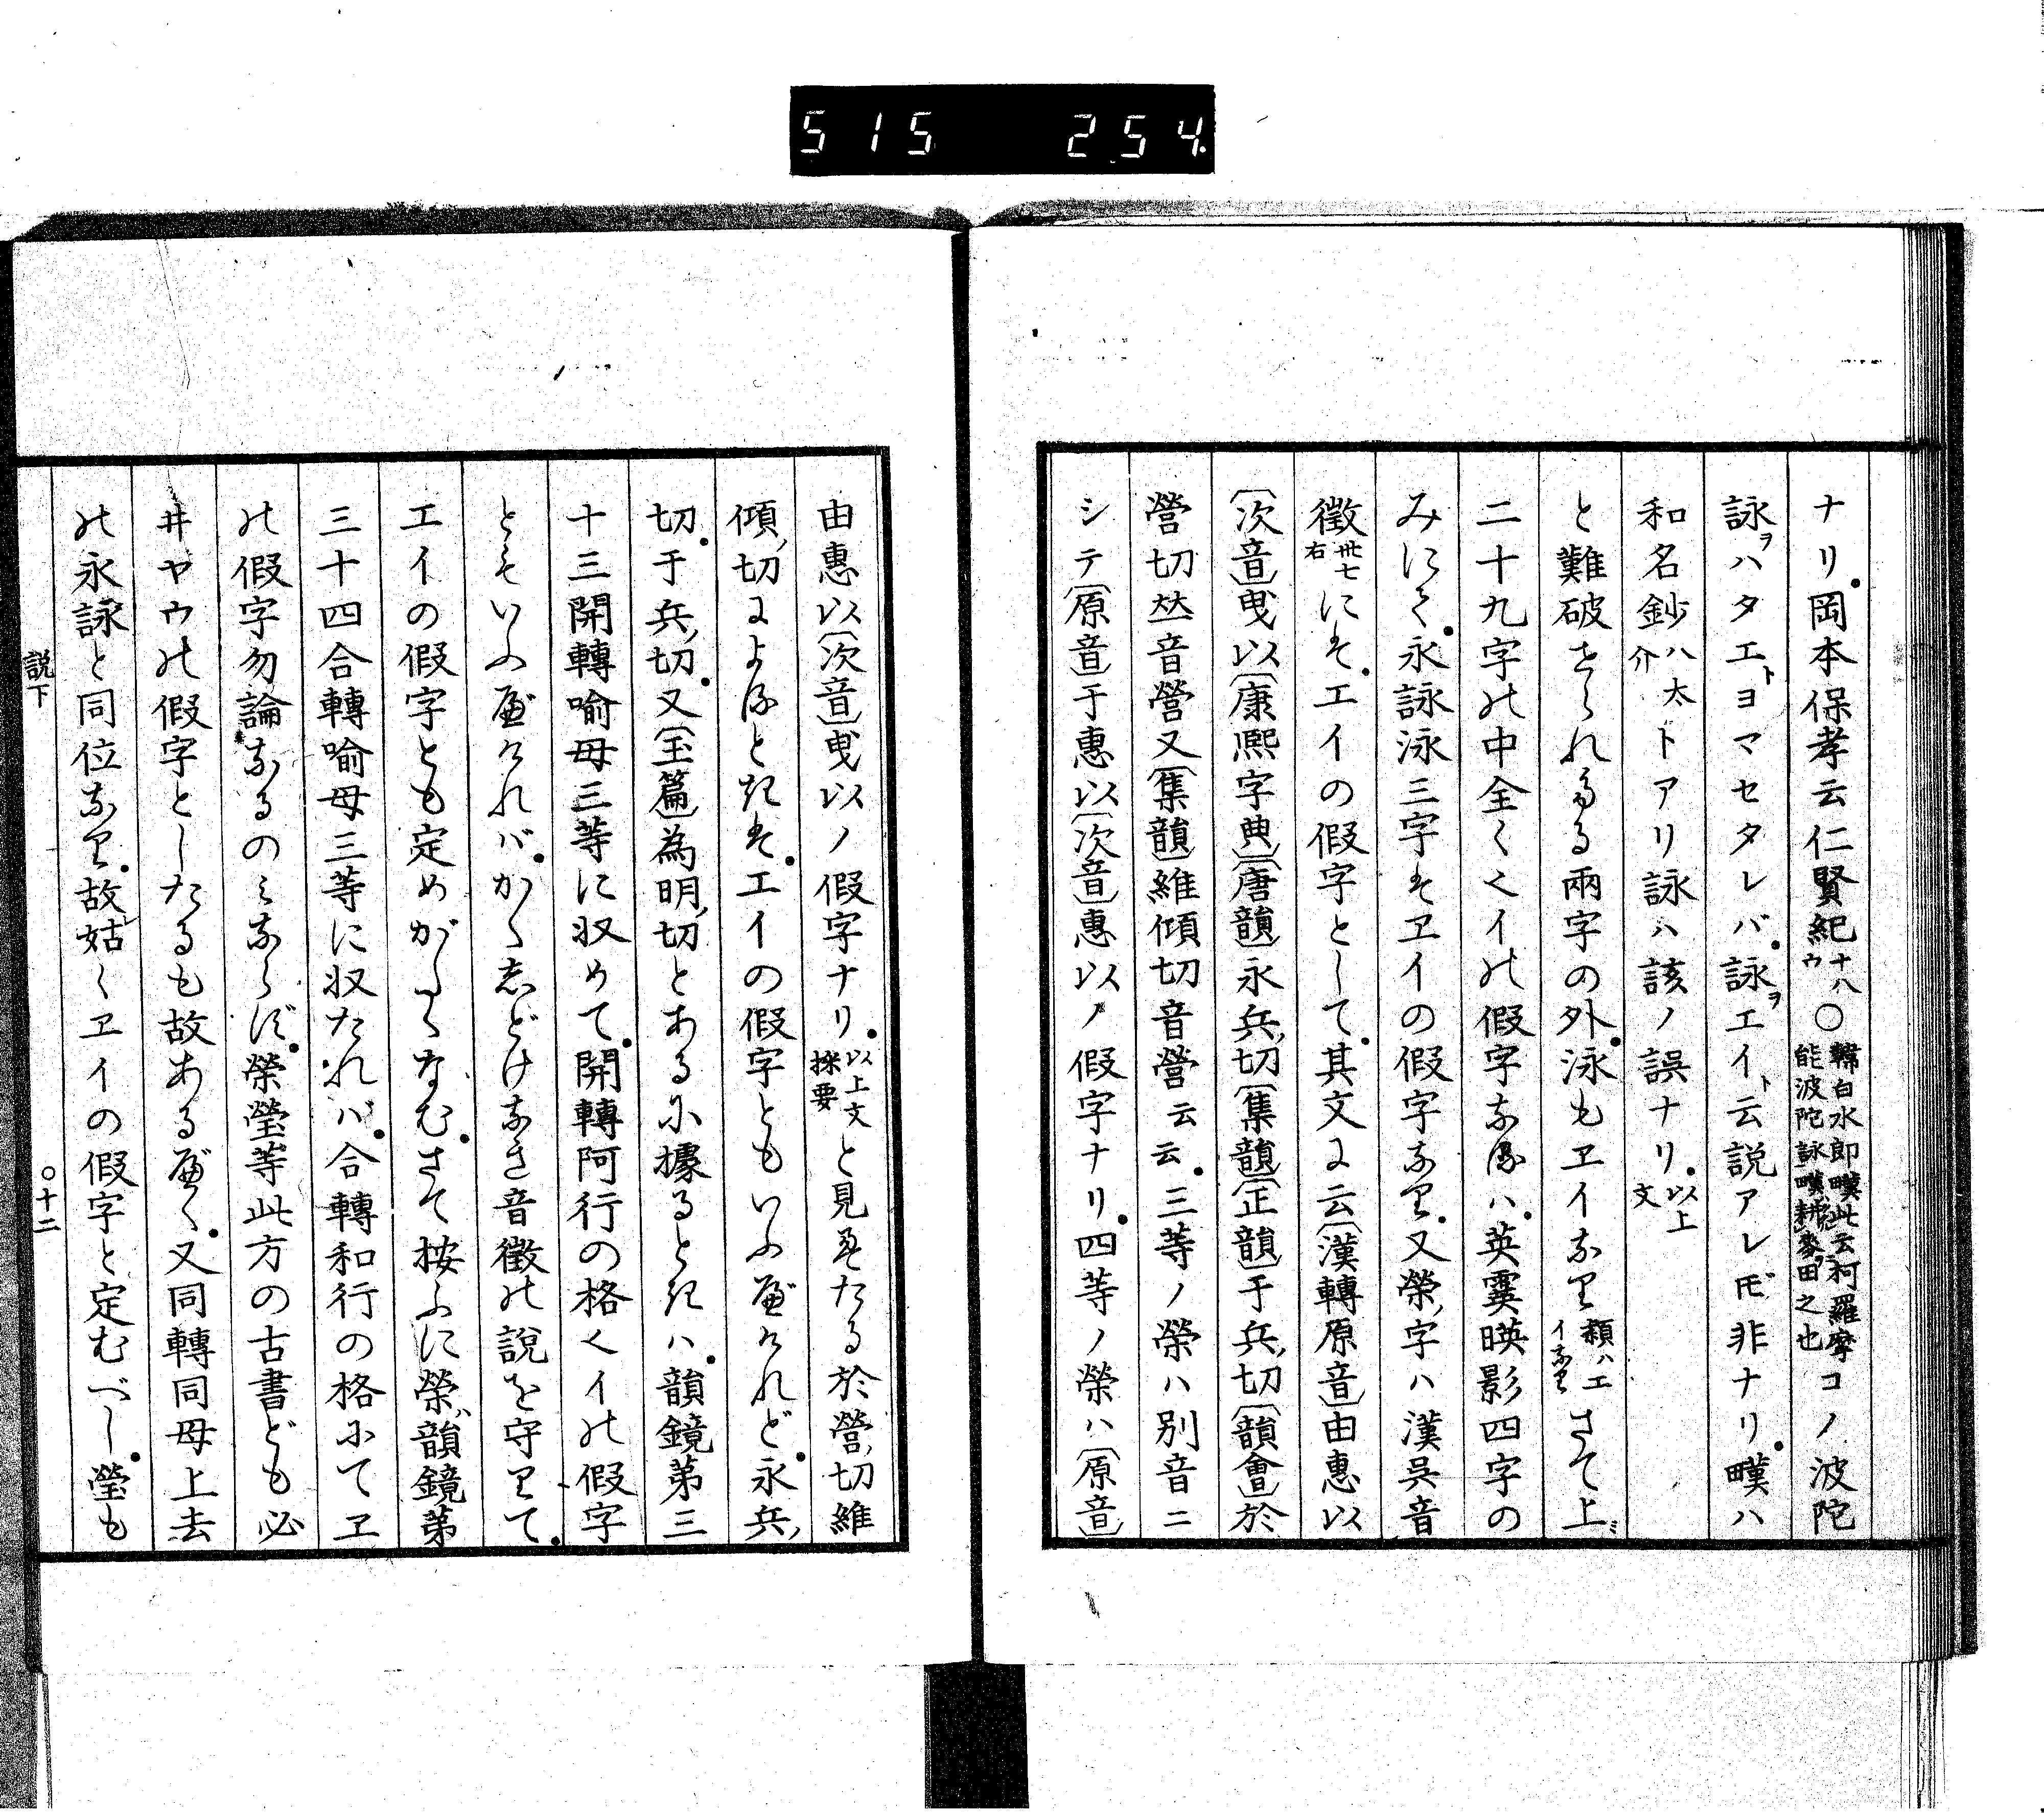 515 254
ナリ。岡本保孝云仁賢紀十八ウ○韓白水郎暵此云柯羅摩能波陀詠暵耕麥田之也コノ波陀
詠ヲハタエトヨマセタレバ。詠ヲエイト云説アレドモ非ナリ。暵ハ
和名鈔ハ太介トアリ詠ハ該ノ誤ナリ。以上文
と難破せられたる兩字の外。泳もヱイなり 類ハエイなり さて上ミ
二十九字の中全くエイの假字なるハ。英霙暎影四字の
みにて。永詠泳三字はヱイの假字なり。又榮字ハ漢呉音
徴卅七右には。エイの假字として。其文に云〔漢轉原音〕由惠以
〔次音〕曳以〔康熙字典〕〔唐韻〕永兵切〔集韻〕〔正韻〕于兵切〔韻會〕於
營切竝音營又〔集韻〕維傾切音營云云。三等ノ榮ハ別音ニ
シテ〔原音〕于惠以〔次音〕惠以ノ假字ナリ。四等ノ榮ハ〔原音〕
由惠以〔次音〕曳以ノ假字ナリ。以上文採要と見えたる於營切維
傾切によるときは。エイの假字ともいふべけれど。永兵
切。于兵切。又〔玉篇〕為明切とあるに據るときハ。韻鏡第三
十三開轉喩母三等に収めて。開轉阿行の格エイの假字
ともいふべけれバ。かくしどけなき音徴の説を守りて。
エイの假字とも定めがたくなむ。さて按ふに榮ハ韻鏡第
三十四合轉喩母三等に収たれバ。合轉和行の格にてヱ
の假字勿論なるのみならず。榮瑩等此方の古書ども必
ヰヤウの假字としたるも故あるべく。又同轉同母上去
の永詠と同位なり。故姑くヱイの假字と定むべし。瑩も
説下 ○十二